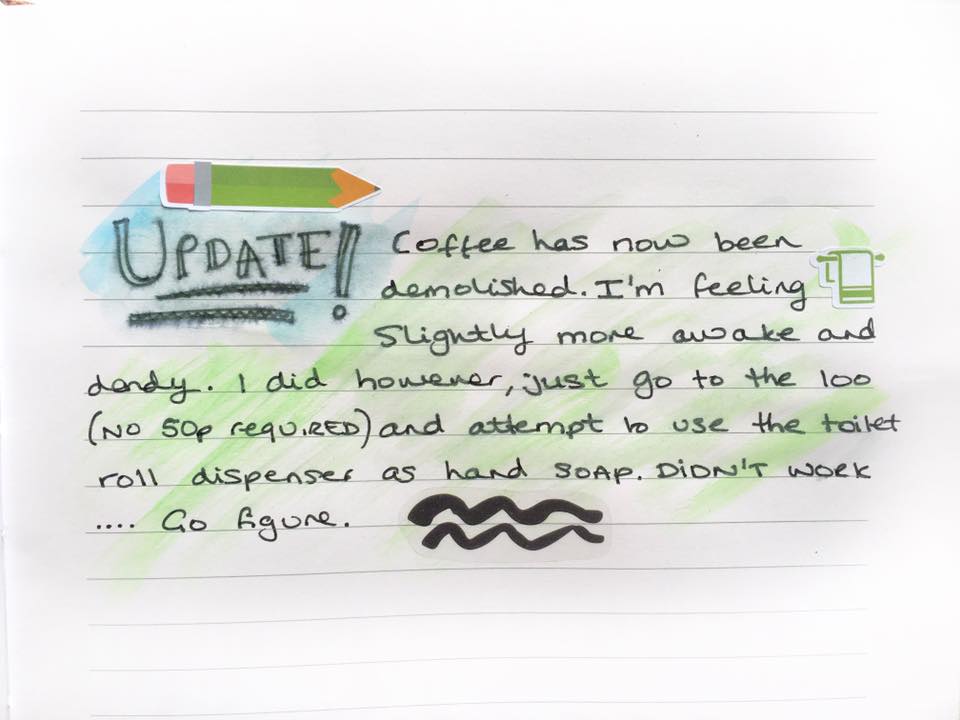 UPDATE! Coffee has now been
demolished. I'm feeling
Slightly more awake and
dandy. I did however, just go to the loo
(NO 50p requIRED) and attempt to use the toilet
roll dispenser as hand SOAP. DIDN'T WORK
.... Go figure.